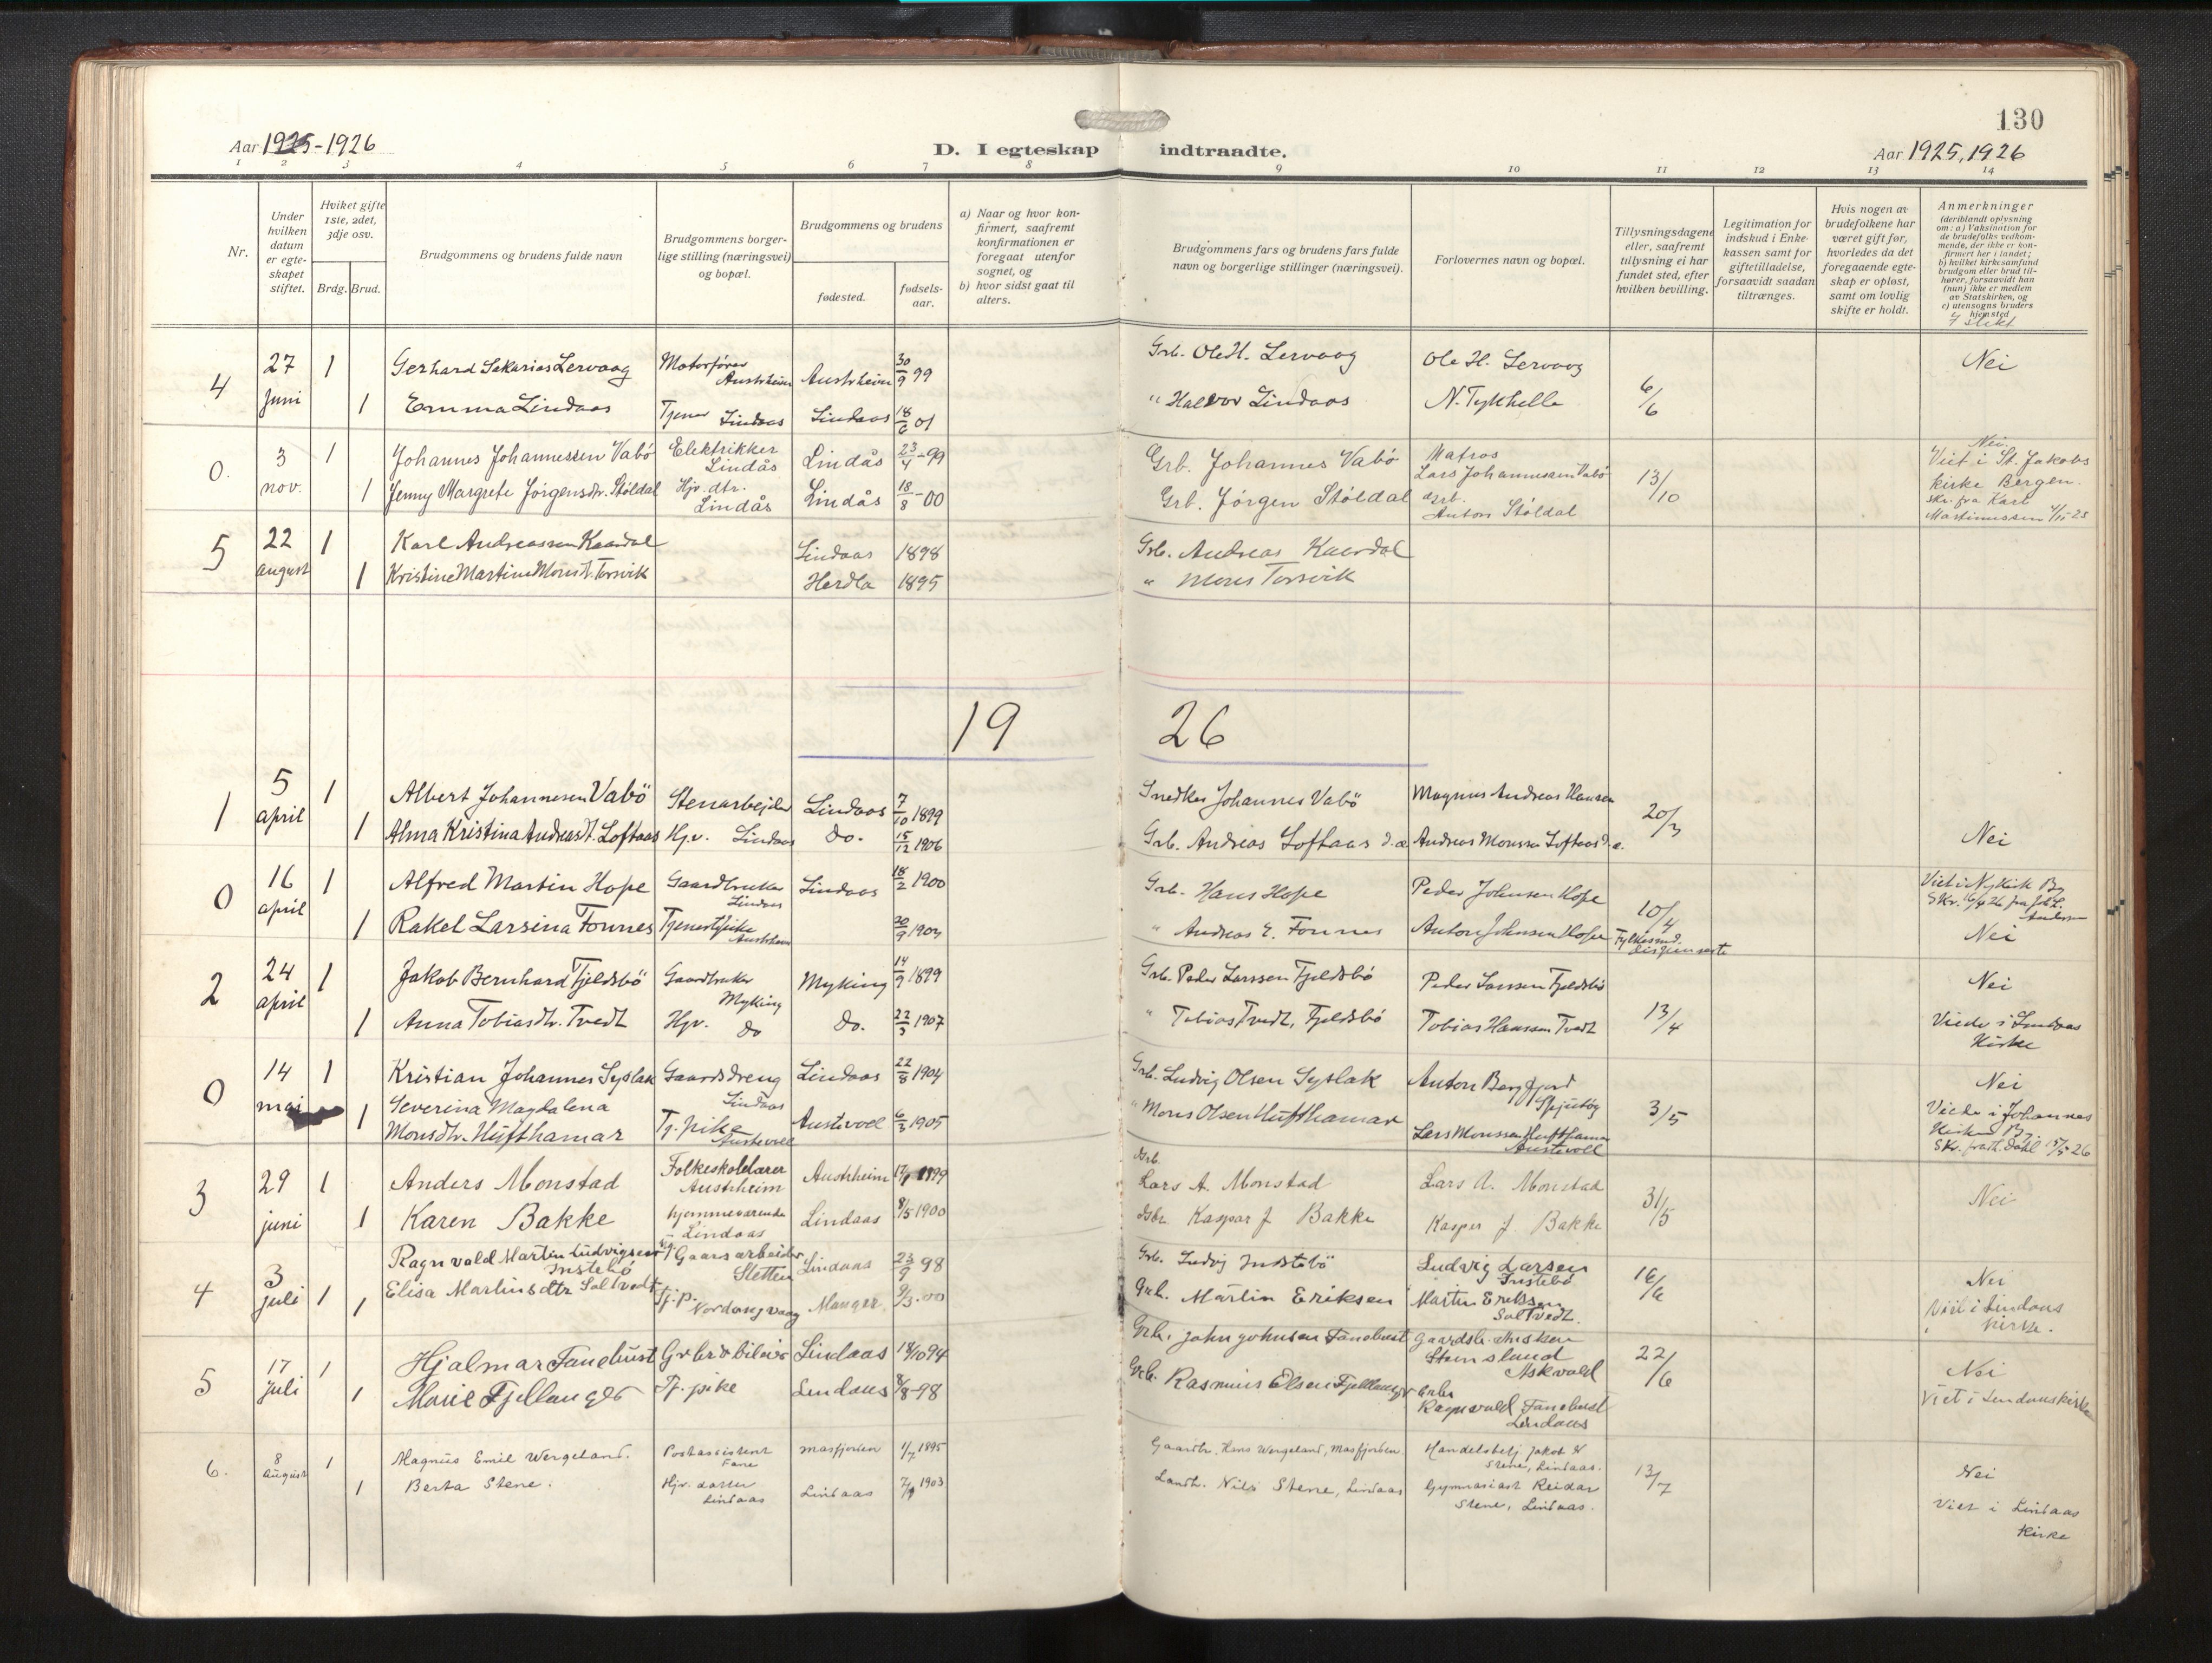 130
Aar 1925-1926
D. I egteskap indtraadte.
Aar 1925, 1926
1 2 3 4 5 6 7 8 9 10 11 12 13 14
Nr.
Under hvilken datum er egteskapet stiftet.
Hviket gifte 1ste, 2det, 3dje osv.
Brdg. Brud.
Brudgommens og brudens fulde navn
Brudgommens borgerlige stilling (næringsvei) og bopæl.
Brudgommens og brudens
fødested.
fødselsaar.
a) Naar og hvor konfirmert, saafremt konfirmationen er foregaat utenfor sognet, og
b) hvor sidst gaat til alters.
Brudgommens fars og brudens fars fulde navn og borgerlige stillinger (næringsvei).
Forlovernes navn og bopæl.
Tillysningsdagene eller, saafremt tillysning ei har fundet sted, efter hvilken bevilling.
Legitimation for indskud i Enkekassen samt for giftetilladelse, forsaavidt saadan tiltrænges.
Hvis nogen av brudefolkene har været gift før, hvorledes da det foregaaende egteskap er opløst, samt om lovlig skifte er holdt.
Anmerkninger
(deriblandt oplysning om: a) Vaksination for de brudefolks vedkommende, der ikke er konfirmert her i landet;
b) hvilket kirkesamfund brudgom eller brud tilhører, forsaavidt han (hun) ikke er medlem av Statskirken, og
c) utensogns bruders hjemsted
I slekt
4 27 Juni 1 Gerhard Sakarias Lervaag Motorfører Austrheim Austrheim 30/9 99 Grb. Ole H. Lervaag Ole H. Lervaag 6/6 Nei
1 Emma Lindaas Tjener Lindaas Lindaas 18/6 01 " Halvor Lindaas N. Tykhelle
0. 3 nov. 1 Johannes Johannessen Vabö Elektrikker Lindås Lindås 23/4-99 Grb. Johannes Vabö Matros Lars Johannessen Vabö 13/10 Nei. Viet i St. Jakobs kirke Bergen.
1 Jenny Margrete Jörgensdr. Stöldal Hjv. dtr. Lindås Lindås 18/8-00 Grb. Jörgen Stöldal Grb. Anton Stöldal Skr. fra Karl Martinussen 4/11 25
5 22 august 1 Karl Andreassen Kaardal Lindaas 1898 Grb. Andreas Kaardal
1 Kristine Martine Monsdt. Torsvik Herdla 1895 " Mons Torsvik
19 26
1 5 april 1 Albert Johannesen Vabö Stenarbejder Lindaas 7/10 1899 Snedker Johannes Vabö Magnus Andreas Hansen 20/3
1 Alma Kristina Andreasdt. Loftaas Hjv. Lindaas do. 15/12 1906 Grb. Andreas Loftaas d.æ. Andreas Monssen Loftaas d.æ. Nei
0 16 april 1 Alfred Martin Hope Gaardbruker Lindaas Lindaas 18/2 1900 Grb. Hans Hope Peder Johnsen Hope 10/4 Viet i Nykirk Bg Skr. 16/4 26 fra Joh. L. Andersen
1 Rakel Larsina Fonnes Tjenestpike Austrheim 20/9 1903 " Andreas E. Fonnes Anton Johnsen Hope Fylkesmd. dispenserte Nei
2 24 april 1 Jakob Bernhard Fjeldsbö Gaardbruker Myking Myking 14/9 1899 Grb. Peder Larssen Fjeldsbö Peder Larssen Fjeldsbö 13/4 Nei
1 Anna Tobiasdtr. Tvedt Hjv. do do. 22/3 1907 " Tobias Tvedt, Fjeldsbö Tobias Hanssen Tvedt Viede i Lindaas Kirke
0 14 mai 1 Kristian Johannes Syslak Gaardsdreng Lindaas Lindaas 22/8 1904 Grb. Ludvig Olsen Syslak Anton Bergfjord 3/5 Nei
1 Severina Magdalena Monsdtr. Hufthamar Tj. pike Austevoll Austevoll 6/3 1905 " Mons Olsen Hufthamar Lars Monssen Hufthamar Austevoll Viede i Johannes Kirken Bg. Skr. fra Dahl 15/5 26
3 29 juni 1 Anders Monstad Folkeskolelærer Austrheim Austrheim 1899 Grb. Lars A. Monstad Lars A. Monstad 31/5 Nei
1 Karen Bakke hjemmeværende Lindaas Lindaas 8/5 1900 Gbr. Kaspar J Bakke Kasper J. Bakke
4 3 juli 1 Ragnvald Martin Ludvigsen Instebö Gaarsarbeider Sletten Lindaas 23/9 98 Grb. Ludvig Instebö Ludvig Larsen Instebö 16/6 Nei
1 Elisa Martinsdtr Soltvedt Tj. p. Nordangvaag Manger. 9/3.00 Grb. Martin Eriksen Martin Eriksen Soltvedt. Viet i Lindaas kirke.
5 17 juli 1 Hjalmar Fanebust Lindaas 18/10 94 Grb. John Johnsen Fanebust Gaardsb. Steinsland Askvold 22/6 Nei
1 Marie Fjellanger Tj. pike Lindaas 8/8-98 Grb. Rasmus Elsen Fjellanger Ragnvald Fanebust Lindaas Viet i Lindaas kirke
6. 8 august 1 Magnus Emil Wergeland. Postassistent Fane Masfjorden 1/7 1895 Gaardbr. Hans Wergeland, Masfjorden. Handelsbetj. Jakob N Stene, Lindaas. 13/7 Nei
1 Berta Stene. Hjv. datter Lindaas Lindaas 1903 Landh. Nils Stene, Lindaas Gymnasiast Reidar Stene, Lindaas. Viet i Lindaas Kirke